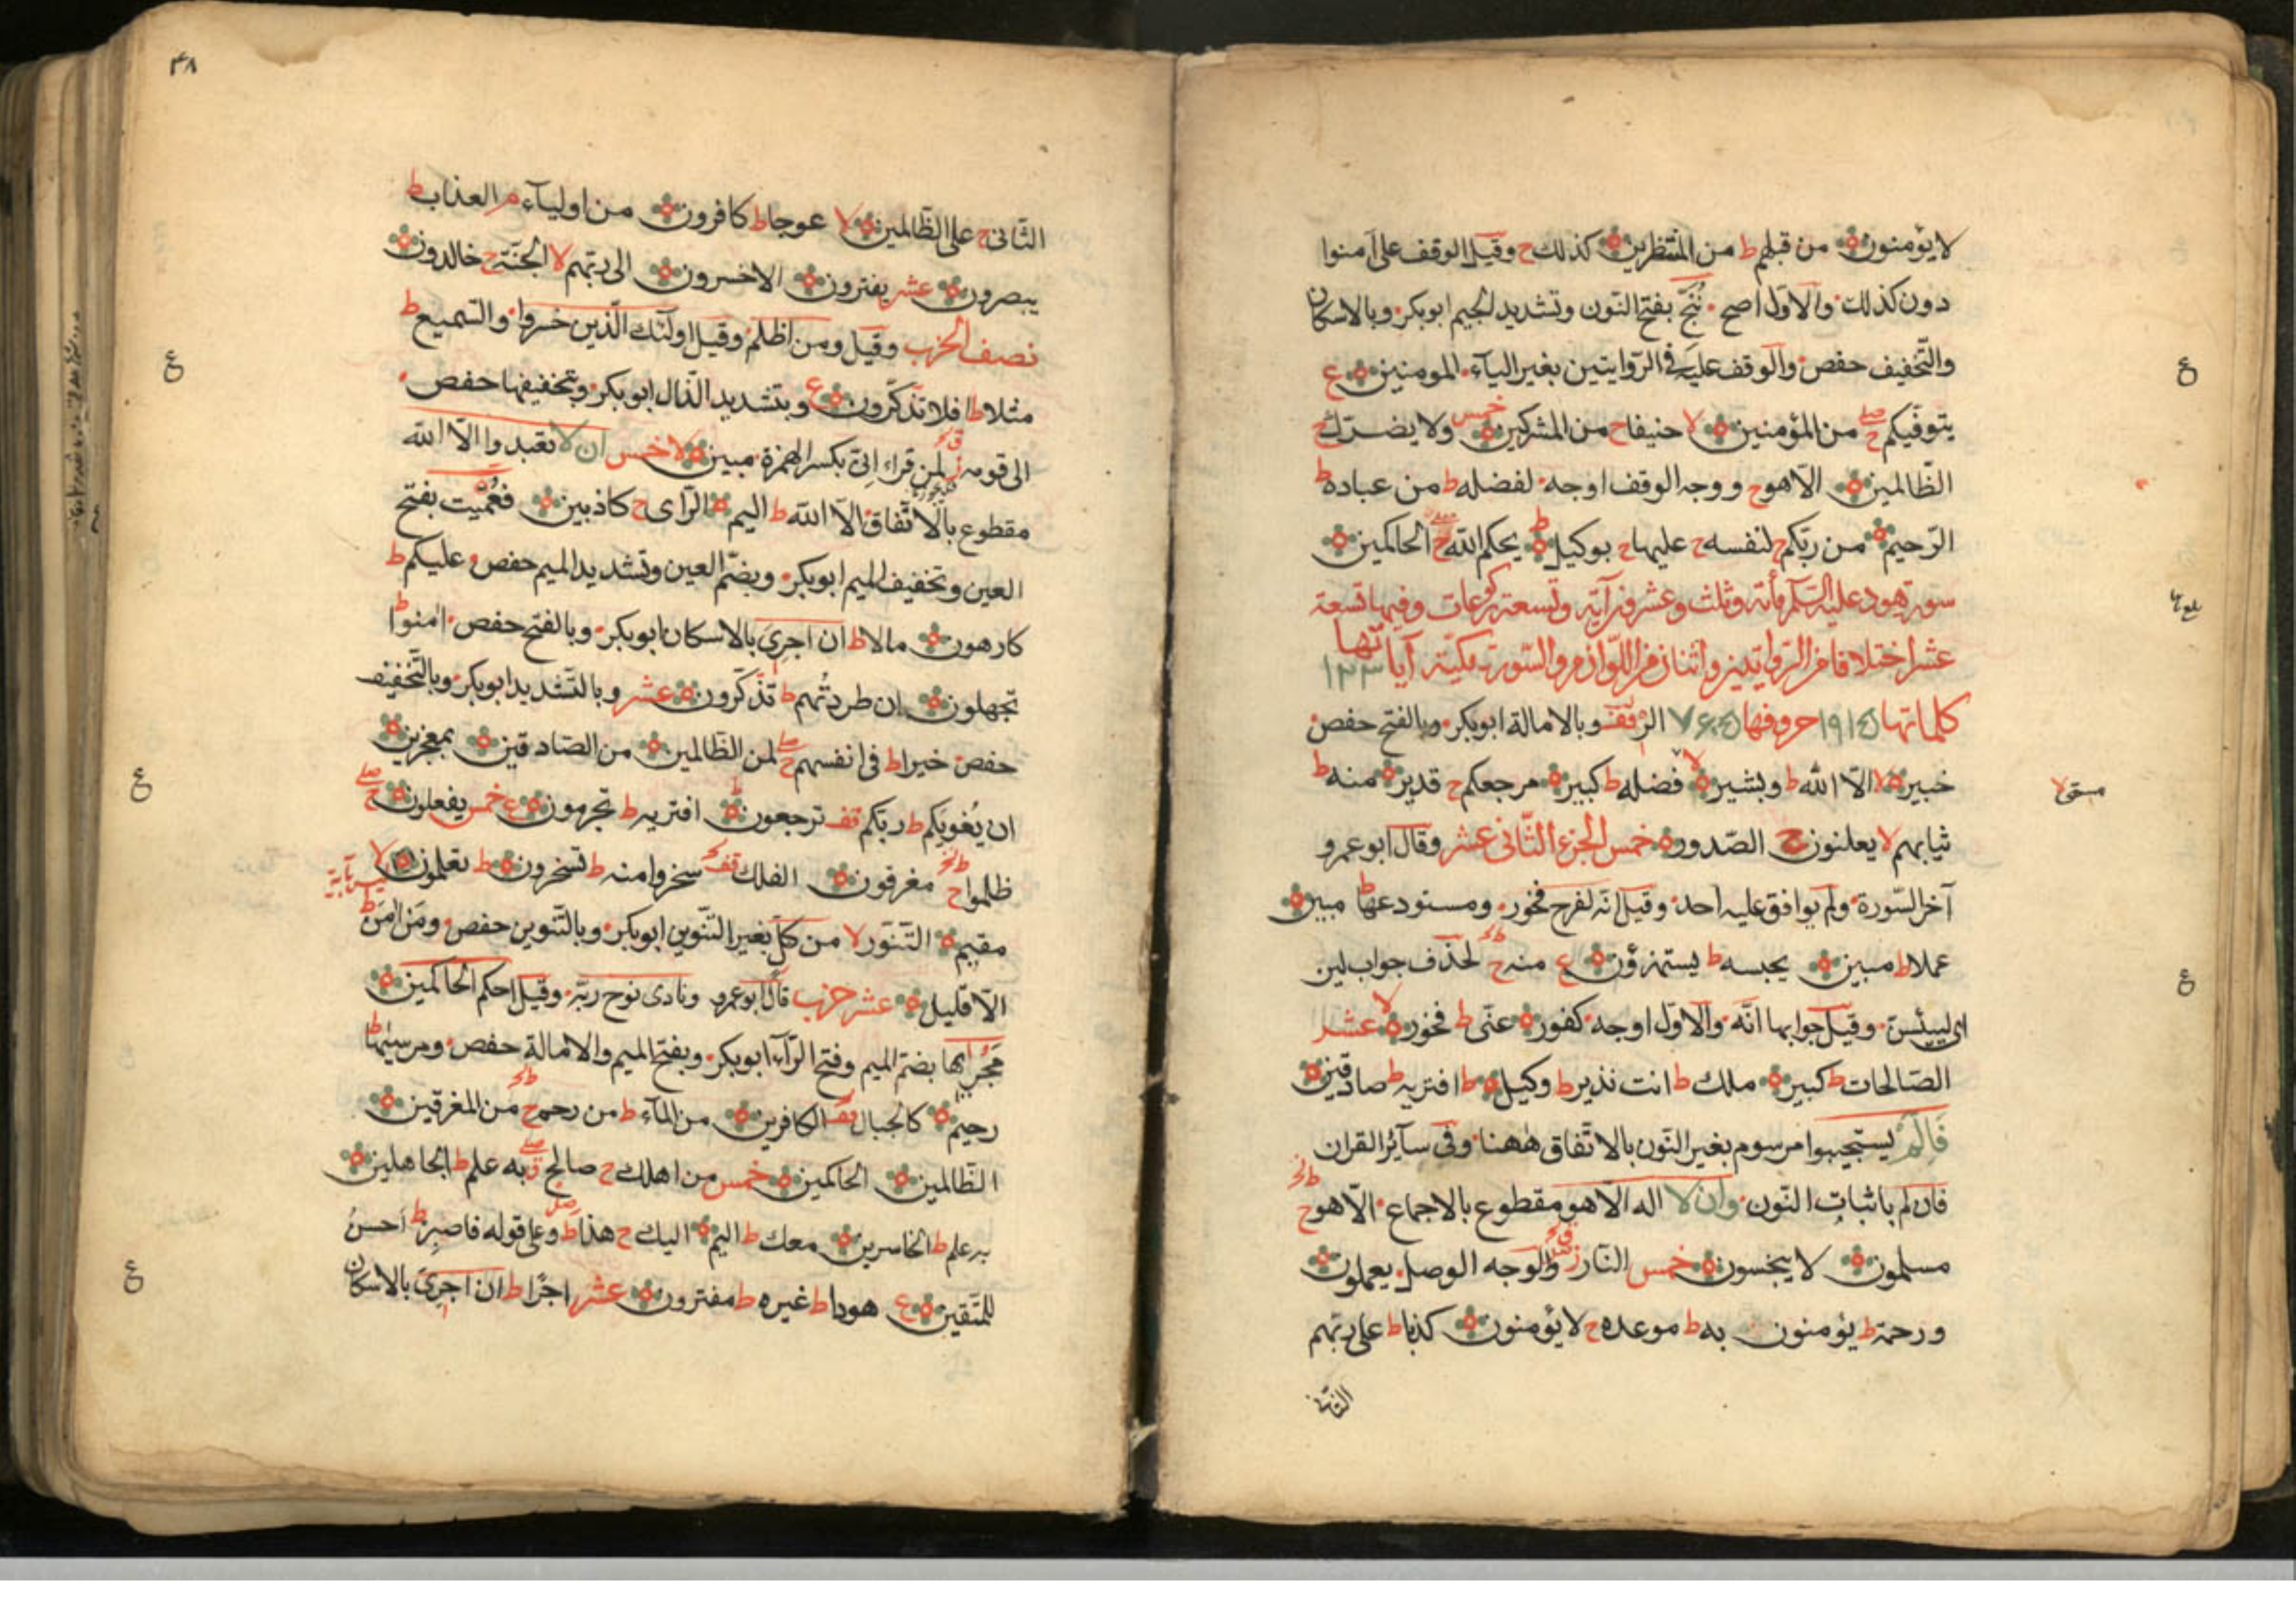 لا يؤمنون من قبلهم ط من المنتظرين كذلك ح وقيل الوقف على آمنوا
دون كذلك والاول اصح ننج بفتح النون وتشديد الجيم ابوبكر وبالاسكان
والتخفيف حفص والوقف عليه في الروايتين بغير الياء المومنين ع
يتوفيكم صلى ح من المؤمنين لا حنيفا ح من المشركين خمس ولا يضرك ح
الظالمين الا هو ح ووجه الوقف اوجه لفضله ط من عباده ط
الرحيم من ربكم ح لنفسه ح عليها ح بوكيل ط يحكم الله ح الحاكمين
سورة هود عليه السلام مأته وثلث وعشرون آية وتسعة ركوعات وفيها تسعة
عشر اختلافا من الروايتين واثنان من اللوازم والسورة مكية آياتها ١٢٣
كلماتها حروفها الر قف وبالامالة ابوبكر وبالفتح حفص
خبير لا الا الله ط وبشير لا فضله ط كبير مرجعكم ح قدير منه ط
ثيابهم لا يعلنون ح الصدور خمس الجزء الثانى عشر وقال ابو عمرو
آخر السورة ولم يوافق عليه احد وقيل انه لفرح فخور ومستودعها ط مبين
عملا ط مبين يحبسه ط يستهزؤن ع منه ح لحذف جواب لين
اى ليئسن وقيل جوابها انه والاول اوجه كفور عنى ط فخور لا عشر
الصالحات ط كبير ملك ط انت نذير ط وكيل ط افتريه ط صادقين
فالم يستجيبوا مرسوم بغير النون بالاتفاق ههنا وفى سآئر القران
فان لم باثبات النون وان لا اله الا هو مقطوع بالاجماع الا هو ح
مسلمون لا يبخسون خمس النار ز والوجه الوصل يعملون
ورحمة ط يؤمنون به ط موعده ح لا يؤمنون كذبا ط على ربهم
ع
مستوى لا
ع
٤٨
الثانى ح على الظالمين لا عوجا ط كافرون من اولياء م العذاب ط
يبصرون عشر يفترون الاخسرون الى ربهم لا الجنة ح خالدون
نصف الحزب وقيل ومن اظلم وقيل اولئك الذين خسروا والسميع ط
مثلا ط افلا تذكرون ع وبتشديد الذال ابوبكر وبتخفيفها حفص
الى قومه ز لمن قراء انى بكسر الهمزة مبين لا خمس ان لا تعبدوا الا الله
مقطوع بالاتفاق الا الله ط اليم الراى ح كاذبين فعميت بفتح
العين وتخفيف الميم ابوبكر وبضم العين وتشديد الميم حفص عليكم ط
كارهون مالا ط ان اجرى بالاسكان ابوبكر وبالفتح حفص امنوا ط
تجهلون ان طردتهم ط تذكرون عشر وبالتشديد ابوبكر وبالتخفيف
حفص خيرا ط فى انفسهم صلى ح لمن الظالمين من الصادقين بمعجزين
ان يغويكم ط ربكم قف ترجعون ط افتريه ط تجرمون ع خمس يفعلون صلى ح
ظلموا ح مغرقون الفلك قف سخروا منه ط تسخرون ط تعلمون لا
مقيم التنور لا من كل بغير التنوين ابوبكر وبالتنوين حفص ومن امن ط
الا قليل عشر حزب قال ابو عمرو ونادى نوح ربه وقيل احكم الحاكمين
مجريها بضم الميم وفتح الراء ابوبكر وبفتح الميم والامالة حفص ومرسيها ط
رحيم كالجبال قف الكافرين من الماء ط من رحم ح من المغرقين
الظالمين الحاكمين خمس من اهلك ح صالح به علم ط الجاهلين
به علم ط الخاسرين معك ط اليم اليك ح هذا ط وعلى قوله فاصبر ط احسن
للمتقين ع هودا ط غيره ط مفترون عشر اجرا ط ان اجرى بالاسكان
ع
ع
ع